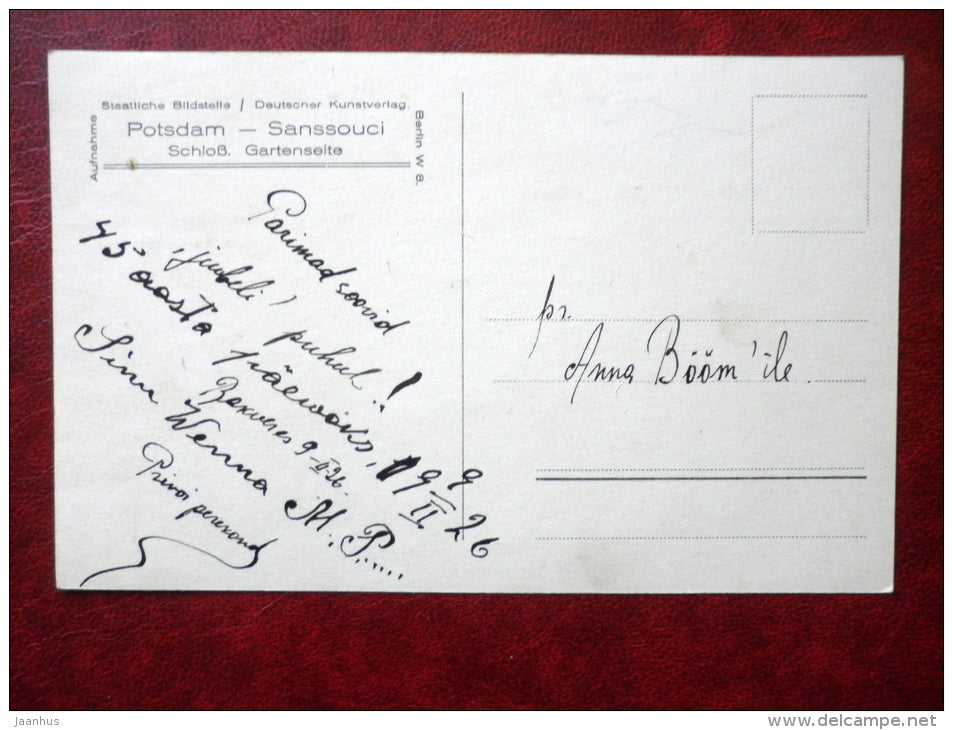 Staatliche Bildstelle / Deutscher Kunstverlag.
Aufnahme
Berlin W 8.
Potsdam — Sanssouci
Schloß. Gartenseite
Parimad soovid
juubeli puhul!
45 aasta
9-II-26.
Sinu Wenna M. P.....
perekond
19 9/II 26
pr.
Anna Bööm'ile.
Jaanhus
www.delcampe.net